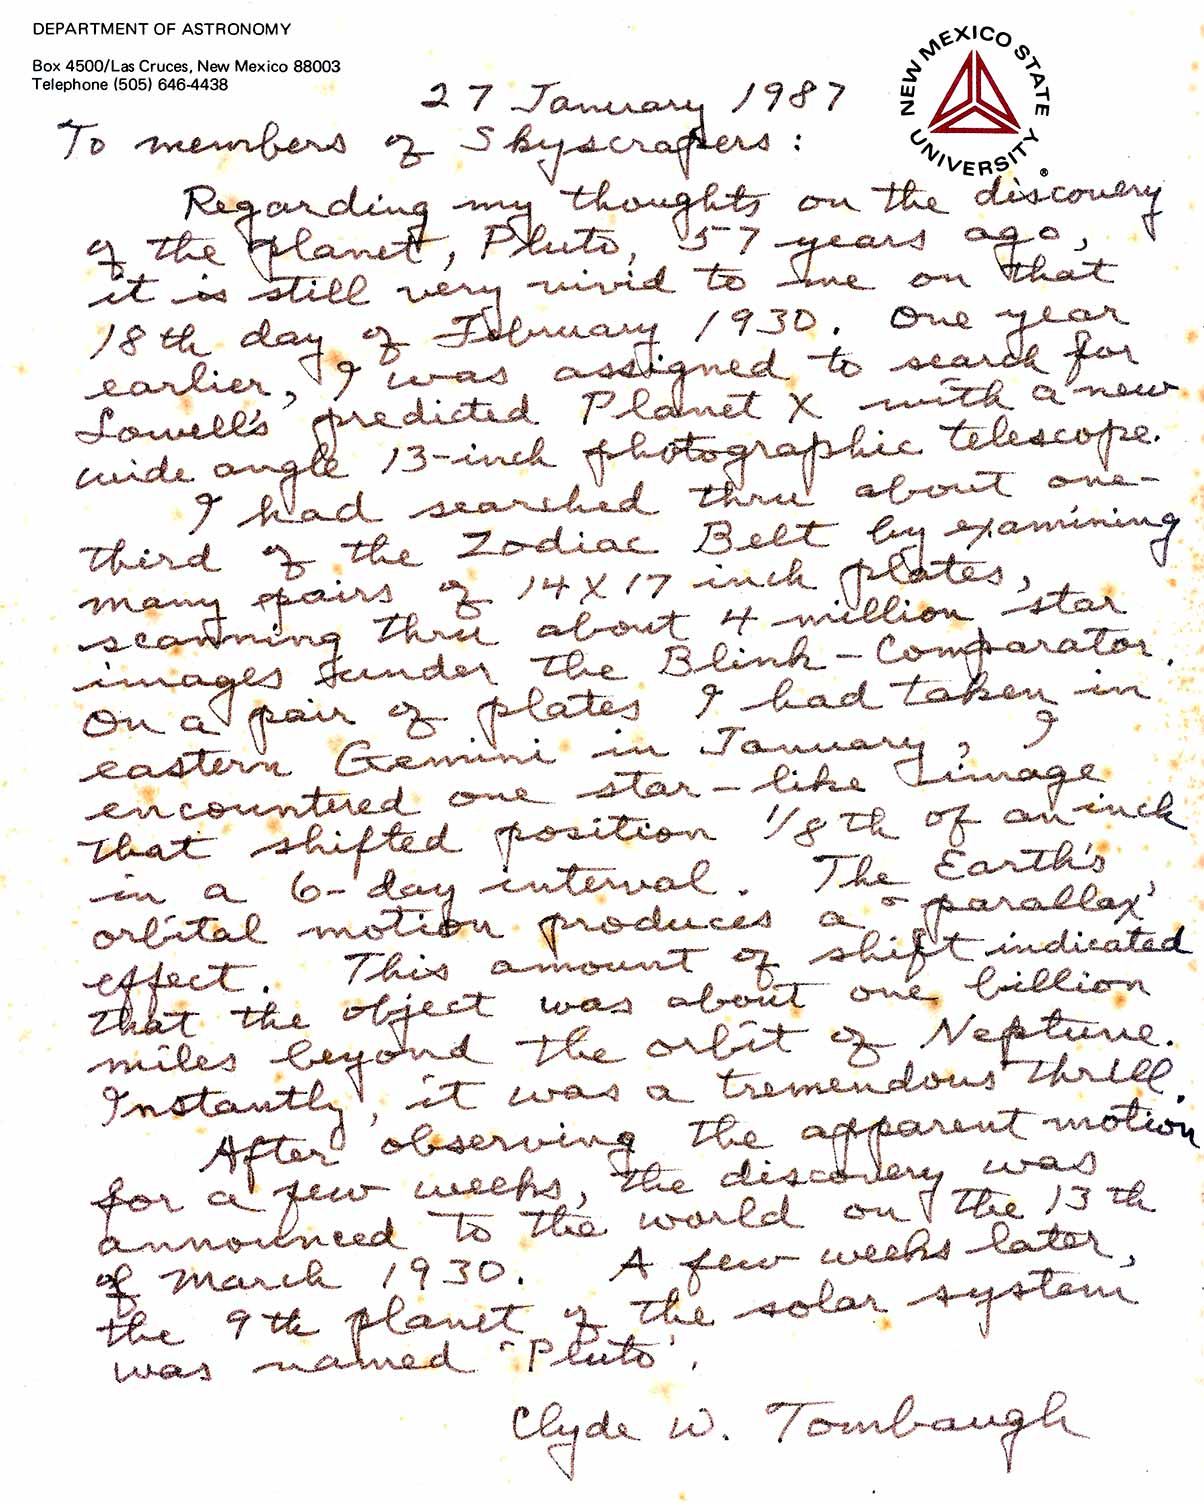 DEPARTMENT OF ASTRONOMY
Box 4500/Las Cruces, New Mexico 88003
Telephone (505) 646-4438
NEW MEXICO STATE UNIVERSITY ®
27 January 1987
To members of Skyscrapers:
Regarding my thoughts on the discovery
of the planet, Pluto, 57 years ago,
it is still very vivid to me on that
18th day of February 1930. One year
earlier, I was assigned to search for
Lowell's predicted Planet X with a new
wide angle 13-inch photographic telescope.
I had searched thru about one-
third of the Zodiac Belt by examining
many pairs of 14X17 inch plates,
scanning thru about 4 million star
images under the Blink-Comparator.
On a pair of plates I had taken in
eastern Gemini in January, I
encountered one star-like image
that shifted position 1/8th of an inch
in a 6-day interval. The Earth's
orbital motion produces a "parallax"
effect. This amount of shift indicated
that the object was about one billion
miles beyond the orbit of Neptune.
Instantly, it was a tremendous thrill.
After observing the apparent motion
for a few weeks, the discovery was
announced to the world on the 13th
of March 1930. A few weeks later,
the 9th planet of the solar system
was named "Pluto".
Clyde W. Tombaugh